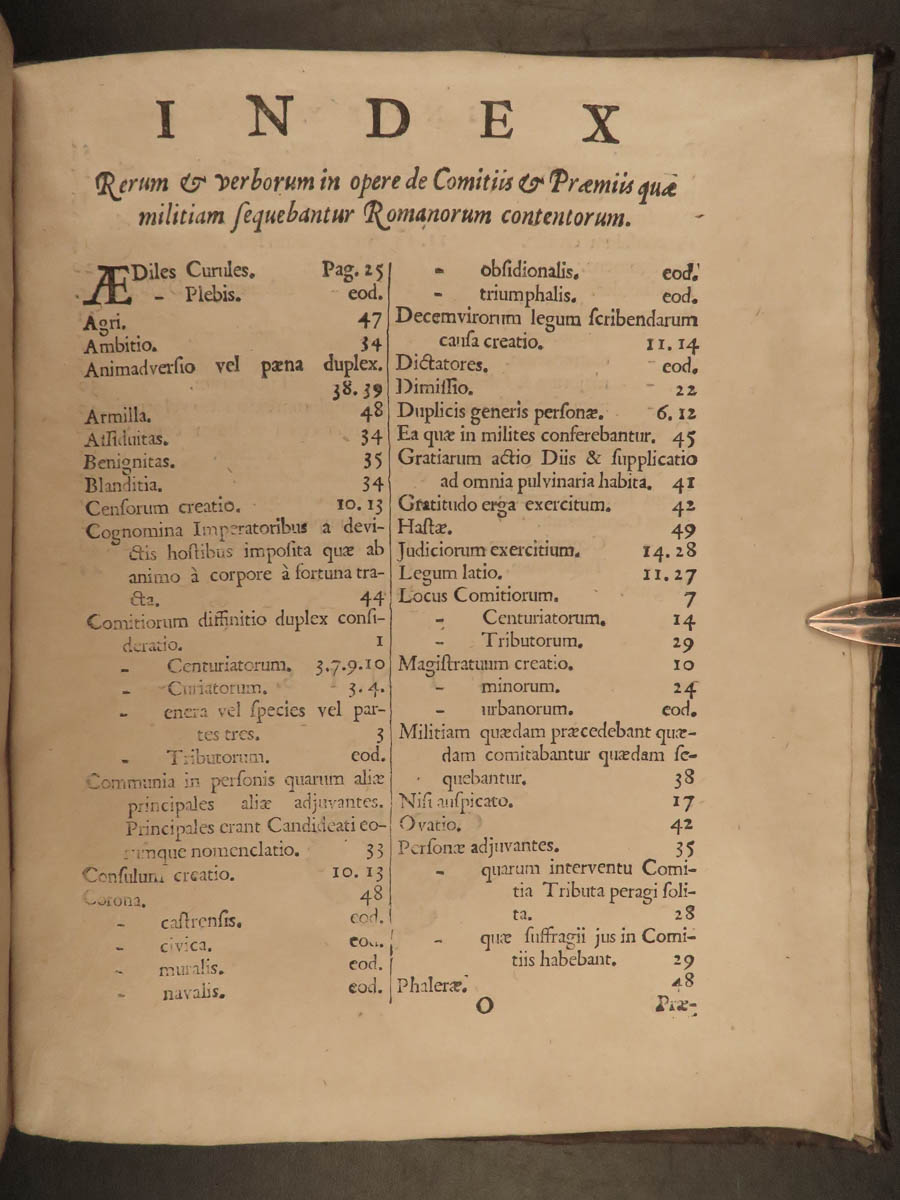 INDEX
Rerum & verborum in opere de Comitiis & Præmiis quæ
militiam ſequebantur Romanorum contentorum.
ÆDiles Curules. Pag. 25
- Plebis. eod.
Agri. 47
Ambitio. 34
Animadverſio vel pæna duplex.
38.39
Armilla. 48
Aſſiduitas. 34
Benignitas. 35
Blanditia. 34
Cenſorum creatio. 10.13
Cognomina Imperatoribus a devi-
ctis hoſtibus impoſita quæ ab
animo à corpore à fortuna tra-
cta. 44
Comitiorum diffinitio duplex conſi-
deratio. 1
- Centuriatorum. 3.7.9.10
- Curiatorum. 3.4.
- enera vel ſpecies vel par-
tes tres. 3
- Tributorum. eod.
Communia in perſonis quarum aliæ
principales aliæ adjuvantes.
Principales erant Candideati eo-
rumque nomenclatio. 33
Conſulum creatio. 10.13
Corona. 48
- caſtrenſis. eod.
- civica. eod.
- muralis. eod.
- navalis. eod.
- obſidionalis. eod.
- triumphalis. eod.
Decemvirorum legum ſcribendarum
cauſa creatio. 11.14
Dictatores. eod.
Dimiſſio. 22
Duplicis generis perſonæ. 6.12
Ea quæ in milites conferebantur. 45
Gratiarum actio Diis & ſupplicatio
ad omnia pulvinaria habita. 41
Gratitudo erga exercitum. 42
Haſtæ. 49
Judiciorum exercitium. 14.28
Legum latio. 11.27
Locus Comitiorum. 7
- Centuriatorum. 14
- Tributorum. 29
Magiſtratuum creatio. 10
- minorum. 24
- urbanorum. eod.
Militiam quædam præcedebant quæ-
dam comitabantur quædam ſe-
quebantur. 38
Niſi auſpicato. 17
Ovatio. 42
Perſonæ adjuvantes. 35
- quarum interventu Comi-
tia Tributa peragi ſoli-
ta. 28
- quæ ſuffragii jus in Comi-
tiis habebant. 29
Phaleræ. 48
O Præ-